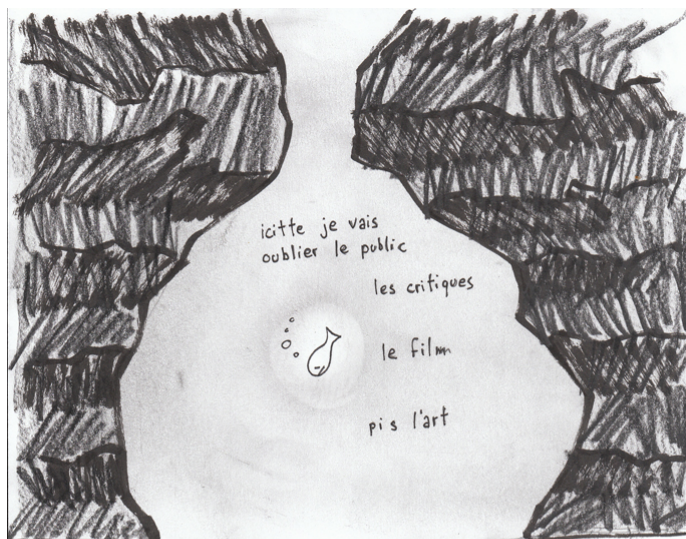 icitte je vais
oublier le public
les critiques
le film
pis l'art